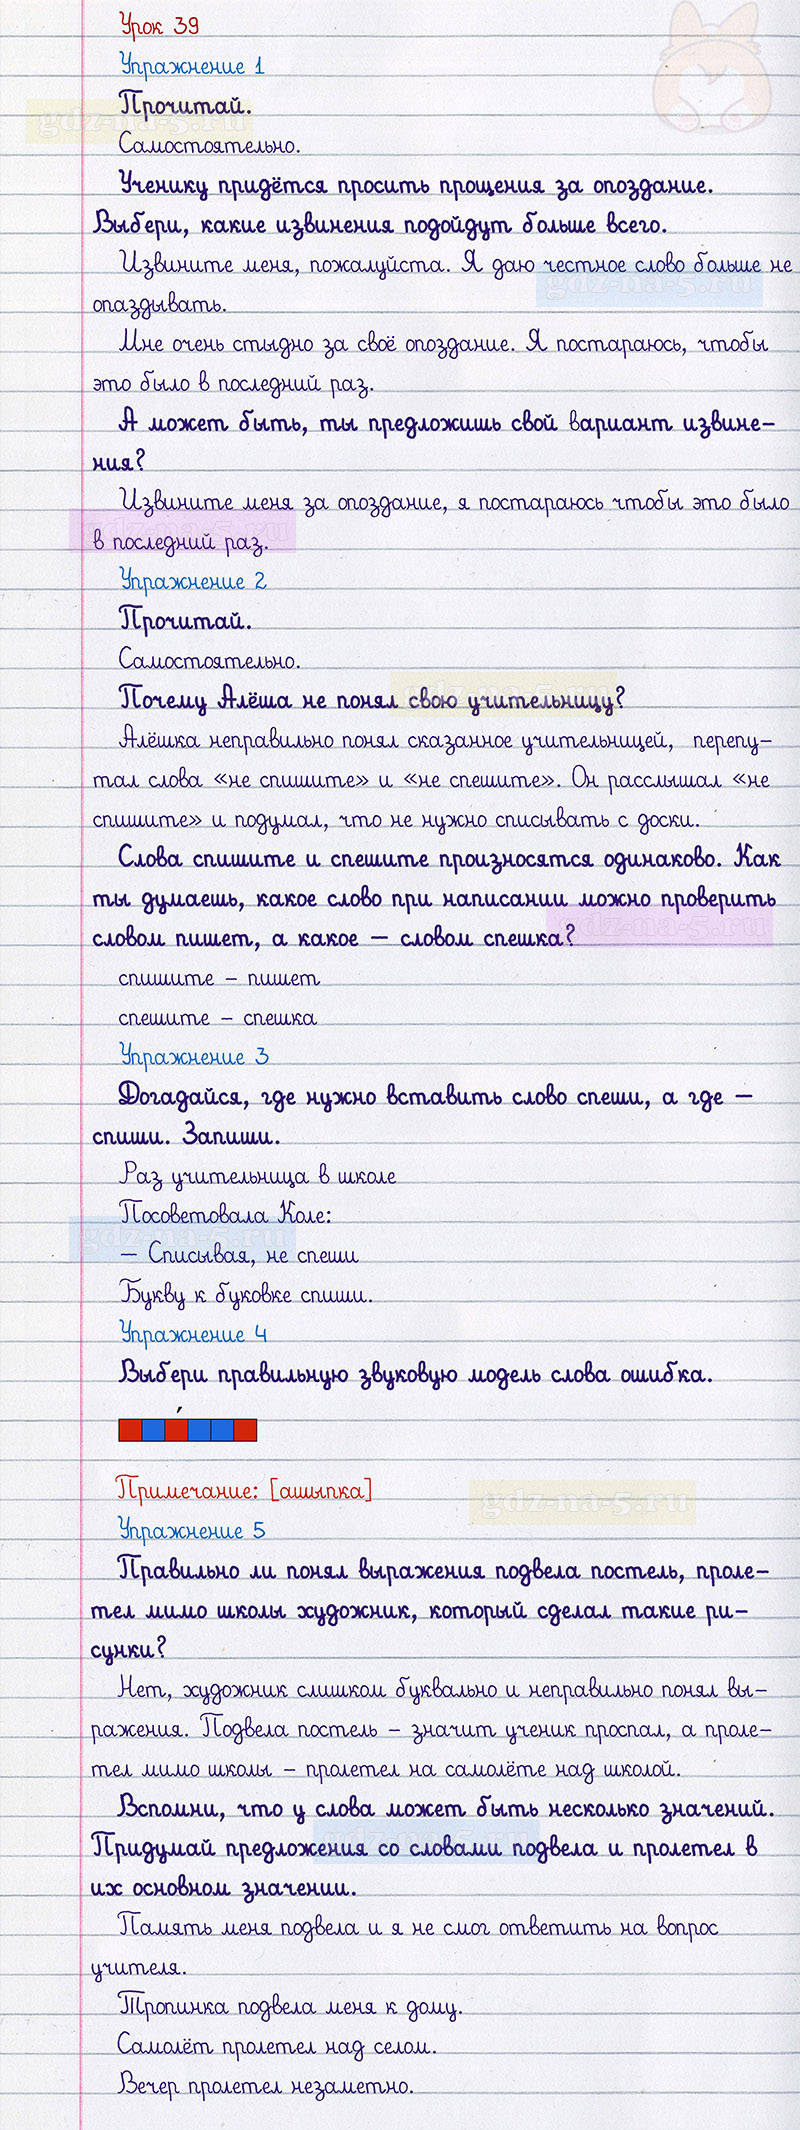 Урок 39
Упражнение 1
Прочитай.
gdz-na-5.ru
Самостоятельно.
Ученику придётся просить прощения за опоздание.
Выбери, какие извинения подойдут больше всего.
Извините меня, пожалуйста. Я даю честное слово больше не
gdz-na-5.ru
опаздывать.
Мне очень стыдно за своё опоздание. Я постараюсь, чтобы
это было в последний раз.
А может быть, ты предложишь свой вариант извине-
ния?
Извините меня за опоздание, я постараюсь чтобы это было
gdz-na-5.ru
в последний раз.
Упражнение 2
Прочитай.
Самостоятельно.
gdz-na-5.ru
Почему Алёша не понял свою учительницу?
Алёшка неправильно понял сказанное учительницей, перепу-
тал слова «не спишите» и «не спешите». Он расслышал «не
спишите» и подумал, что не нужно списывать с доски.
Слова спишите и спешите произносятся одинаково. Как
ты думаешь, какое слово при написании можно проверить
gdz-na-5.ru
словом пишет, а какое – словом спешка?
спишите – пишет
спешите – спешка
Упражнение 3
Догадайся, где нужно вставить слово спеши, а где –
спиши. Запиши.
Раз учительница в школе
Посоветовала Коле:
gdz-na-5.ru
– Списывая, не спеши
Букву к буковке спиши.
Упражнение 4
Выбери правильную звуковую модель слова ошибка.
Примечание: [ашыпка]
gdz-na-5.ru
Упражнение 5
Правильно ли понял выражения подвела постель, проле-
тел мимо школы художник, который сделал такие ри-
сунки?
Нет, художник слишком буквально и неправильно понял вы-
ражения. Подвела постель – значит ученик проспал, а проле-
тел мимо школы – пролетел на самолёте над школой.
Вспомни, что у слова может быть несколько значений.
gdz-na-5.ru
Придумай предложения со словами подвела и пролетел в
их основном значении.
Память меня подвела и я не смог ответить на вопрос
учителя.
Тропинка подвела меня к дому.
Самолёт пролетел над селом.
Вечер пролетел незаметно.